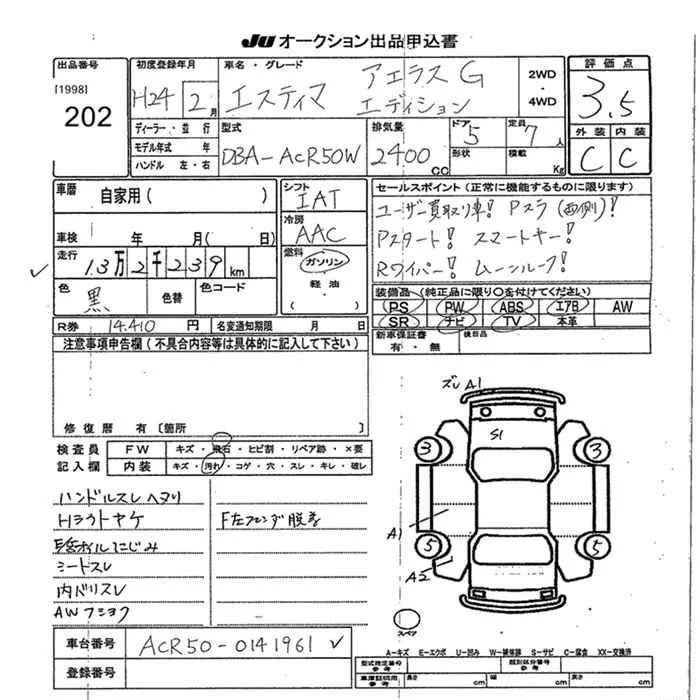 JU オークション出品申込書
出品番号 初度登録年月 車名・グレード 評価点
[1998] H24 2月 エスティマ アエラス G エディション 2WD・4WD 3.5
202
ディーラー・並行 型式 排気量 ドア 定員 外装 内装
モデル年式 年 DBA-ACR50W 2400cc 5 7人 C C
ハンドル 左・右 形状 積載 Kg
車歴 自家用( ) シフト IAT セールスポイント(正常に機能するものに限ります)
冷房 AAC ユーザー買取り車! Pスラ(両側)!
車検 年 月( 日) 燃料 Pスタート! スマートキー!
走行 13万2千239km ガソリン Rワイパー! ムーンルーフ!
色 黒 色替 色コード 軽油 装備品(純正品に限り○を付けてください)
( ) PS PW ABS エアB AW
R券 14.410円 名変通知期限 月 日 SR ナビ TV 本革
注意事項申告欄(不具合内容等は具体的に記入して下さい) 新車保証書 有・無 検印品
修復歴 有〔箇所 〕
検査員 FW キズ・飛石・ヒビ割・リペア跡・×要
記入欄 内装 キズ・汚れ・コゲ・穴・スレ・キレ・破レ
ズレ A1
S1
3 3
A1
5 5
A2
スペア
ハンドルスレ ヘタリ
Hライトヤケ F左フェンダ脱着
シートスレ
内バリスレ
AWフショク
車台番号 ACR50-0141961
登録番号
A-キズ E-エクボ U-凹み W-補修跡 S-サビ C-腐食 XX-交換済
型式指定番号 参考 類別区分番号 参考
車庫証明用 参考 長さ cm 幅 cm 高さ cm